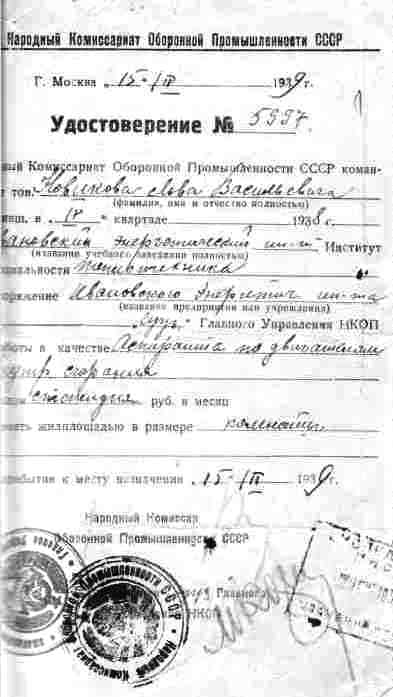 Народный Комиссариат Оборонной Промышленности СССР
Г. Москва „15-/III 1939г.
Удостоверение № 5997.
ный Комиссариат Оборонной Промышленности СССР коман-
т тов. Новикова Льва Васильевича
(фамилия, имя и отчество полностью)
в IV квартале 1938 г.
вановский Энергетический ин-т Институт
(название учебного заведения полностью)
циальности теплотехника
оряжение Ивановского Энергетич ин-та
(название предприятия или учреждения)
Главного Управления НКОП
боты в качестве Аспиранта по двигателям
внутр сгорания
стипендия руб. в месяц
жилплощадью в размере комнаты
рибытия к месту назначения 15-/III 1939г.
Народный Комиссар
Оборонной Промышленности СССР
Главного
НКОП
Народный Комиссариат Оборонной Промышленности СССР